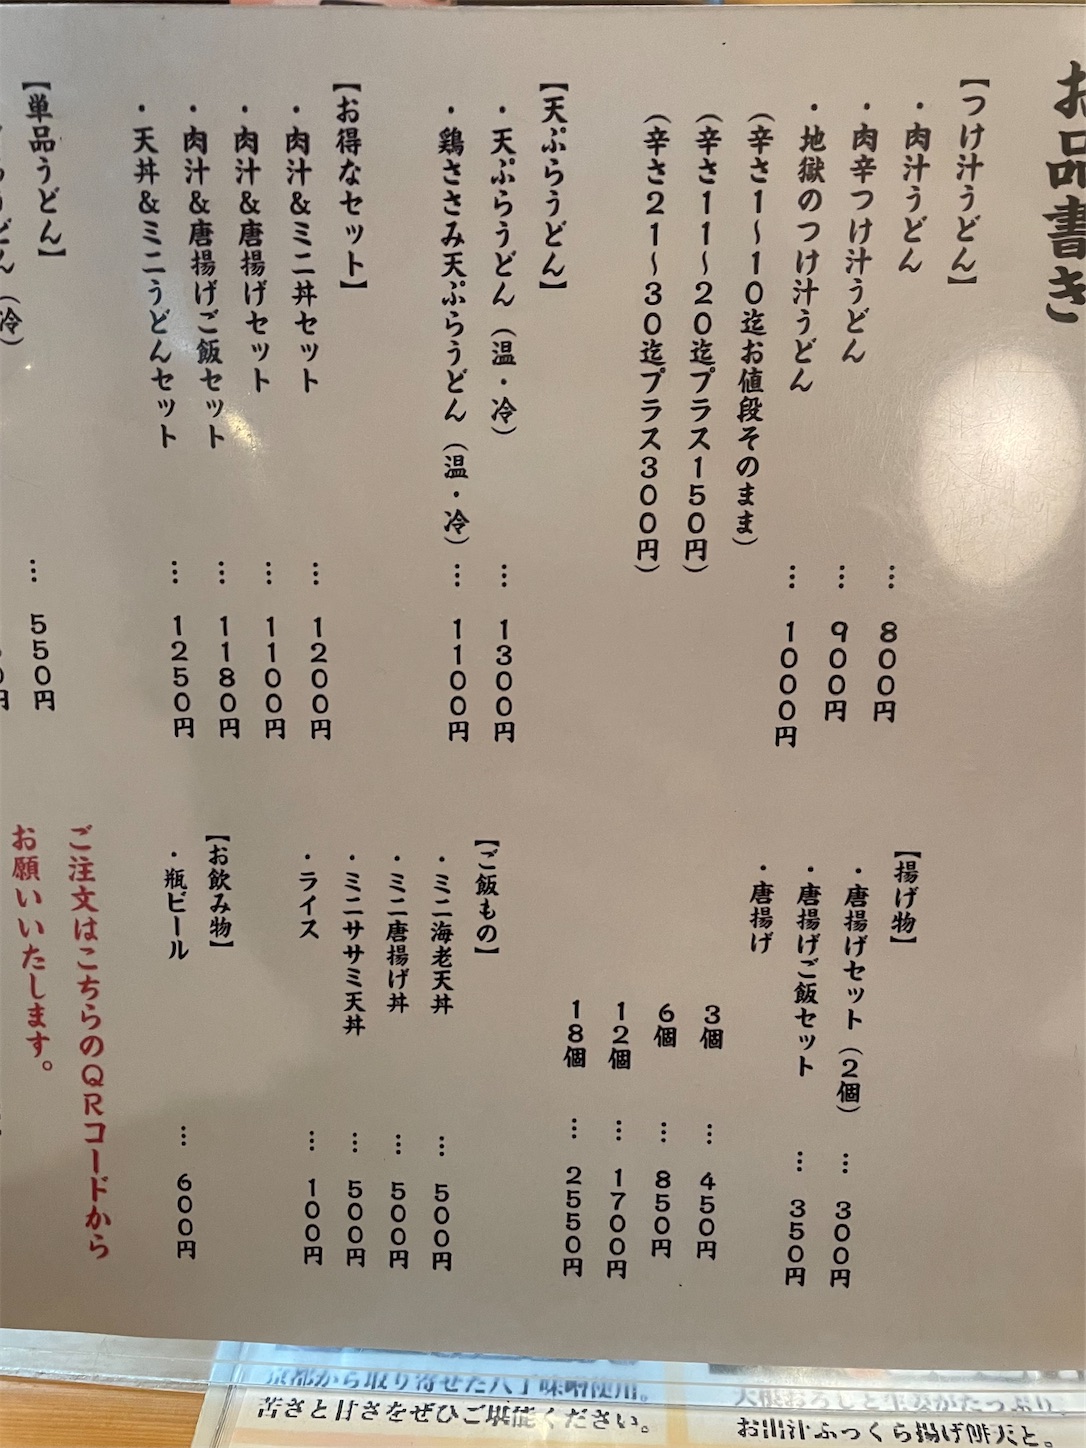 お品書き
【つけ汁うどん】
・肉汁うどん … 800円
・肉辛つけ汁うどん … 900円
・地獄のつけ汁うどん … 1000円
(辛さ1~10迄お値段そのまま)
(辛さ11~20迄プラス150円)
(辛さ21~30迄プラス300円)
【天ぷらうどん】
・天ぷらうどん(温・冷) … 1300円
・鶏ささみ天ぷらうどん(温・冷) … 1100円
【お得なセット】
・肉汁&ミニ丼セット … 1200円
・肉汁&唐揚げセット … 1100円
・肉汁&唐揚げご飯セット … 1180円
・天丼&ミニうどんセット … 1250円
【単品うどん】
… 550円
【揚げ物】
・唐揚げセット(2個) … 300円
・唐揚げご飯セット … 350円
・唐揚げ
3個 … 450円
6個 … 850円
12個 … 1700円
18個 … 2550円
【ご飯もの】
・ミニ海老天丼 … 500円
・ミニ唐揚げ丼 … 500円
・ミニササミ天丼 … 500円
・ライス … 100円
【お飲み物】
・瓶ビール … 600円
ご注文はこちらのQRコードから
お願いいたします。
京都から取り寄せた八丁味噌使用。
苦さと甘さをぜひご堪能ください。